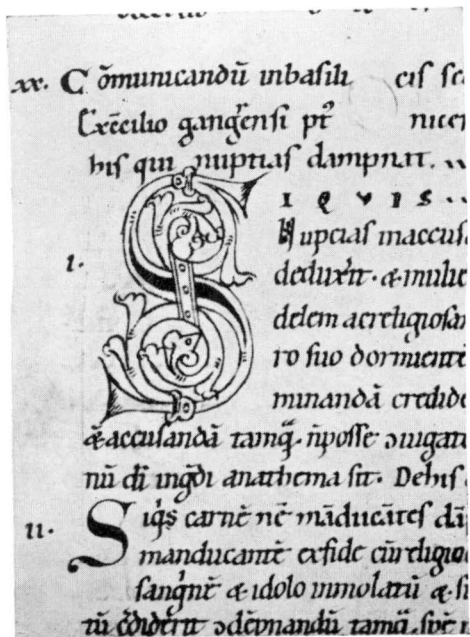 xx. Cōmunicandū inbasili cis sc
Exc̄cilio gangrēnsi pt̄ nicen
his qui nuptias dampnat.
S I QVIS
Nupcias inaccus
i. deduxer̄t. & mulie
delem acreligiosa
ro suo dormiente
minandā credide
& accusandā tamq̄. n̄posse
nū dī ingdī anathema sit. Dehis
ii. Siq̄s carnē
manducante exfide cūreligio
sangnē & idolo inmolatū & s
tū